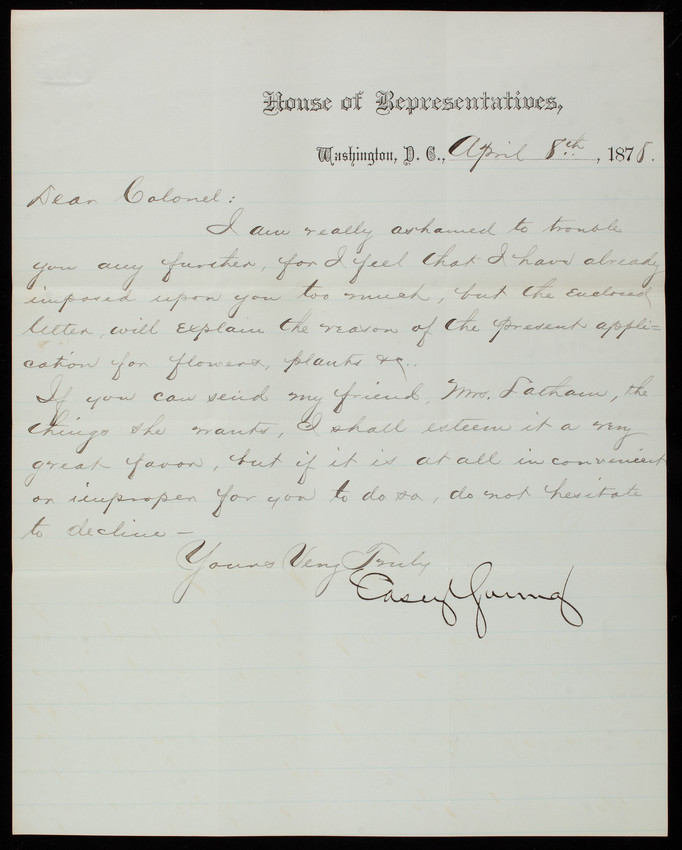 House of Representatives,
Washington, D. C., April 8th, 1878.
Dear Colonel:
I am really ashamed to trouble
you any further, for I feel that I have already
imposed upon you too much, but the enclosed
letter, will explain the reason of the present appli=
cation for flowers, plants &c..
If you can send my friend, Mrs. Latham, the
things she wants, I shall esteem it a very
great favor, but if it is at all inconvenient
or improper for you to do so, do not hesitate
to decline—
Yours Very Truly
Casey Young